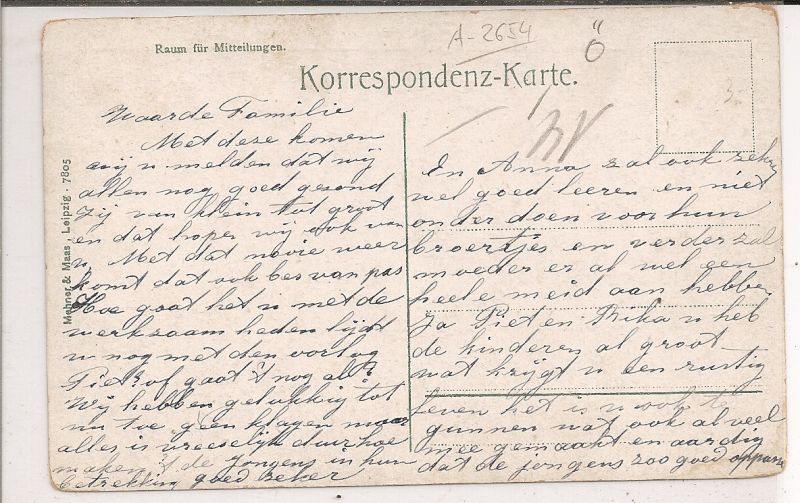 A-2654
Ö
Raum für Mitteilungen.
Korrespondenz-Karte.
3-
Mehner & Maas, Leipzig. 7805
Waarde Familie
Met deze komen
wij u melden dat wij
allen nog goed gesond
zij van klein tot groot
en dat hopen wij ook van
u. Met dat mooie weer
komt dat ook bes van pas
Hoe gaat het u met de
werkzaam heden lijdt
u nog met den oorlog
Piet? of gaat 't nog al?
Wij hebben gelukkig tot
nu toe geen klagen maar
alles is vreeselijk duur hoe
maken 't de jongens in hun
betrekking goed zeker
En Anna zal ook zeker
wel goed leeren en niet
onder doen voor hun
broertjes en verder zal
moeder er al wel een
heele meid aan hebben
Ja Piet en Rika u heb
de kinderen al groot
wat krijgt u een rustig
leven het is u ook te
gunnen wat ook al veel
mee gemaakt en aardig
dat de jongens zoo goed oppassen